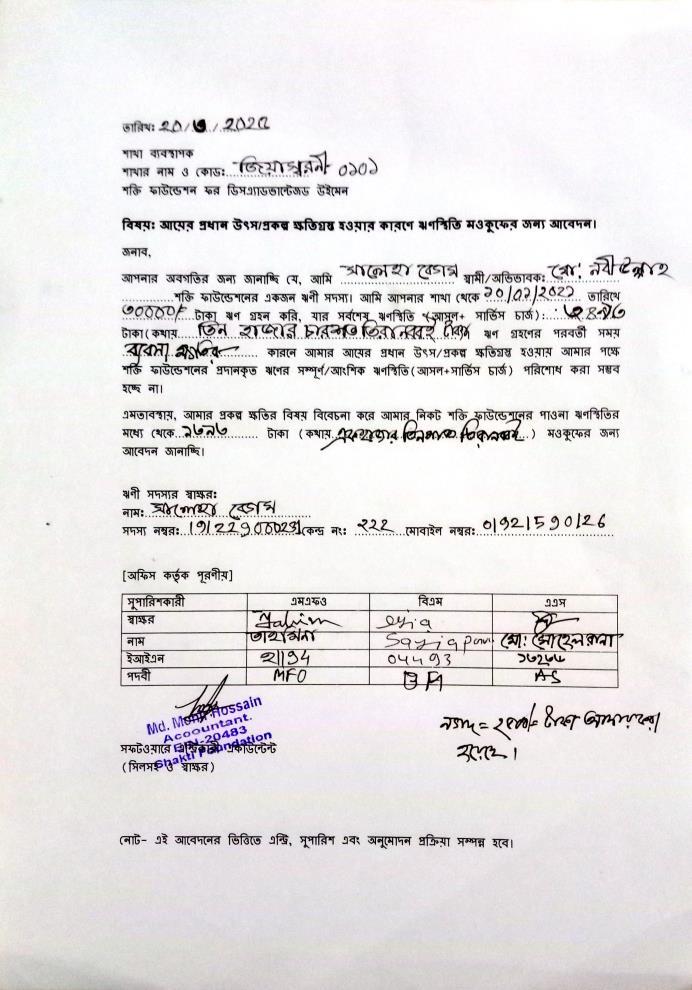 তারিখ: ২০/৩/২০২৫
শাখা ব্যবস্থাপক
শাখার নাম ও কোড: জিয়াস্মরনী ০১০১
শক্তি ফাউন্ডেশন ফর ডিসএ্যাডভান্টেজড উইমেন
বিষয়: আয়ের প্রধান উৎস/প্রকল্প ক্ষতিগ্রস্ত হওয়ার কারণে ঋণস্থিতি মওকুফের জন্য আবেদন।
জনাব,
আপনার অবগতির জন্য জানাচ্ছি যে, আমি সালেহা বেগম স্বামী/অভিভাবক: মো: নবী উল্লাহ
শক্তি ফাউন্ডেশনের একজন ঋণী সদস্য। আমি আপনার শাখা থেকে তারিখে
৩০০০০/- টাকা ঋণ গ্রহন করি, যার সর্বশেষ ঋণস্থিতি (আসল+ সার্ভিস চার্জ):
টাকা (কথায় তিন হাজার চারশত তিরানব্বই টাকা ঋণ গ্রহণের পরবর্তী সময়
ব্যবসা ক্ষতির কারনে আমার আয়ের প্রধান উৎস/প্রকল্প ক্ষতিগ্রস্ত হওয়ায় আমার পক্ষে
শক্তি ফাউন্ডেশনের প্রদানকৃত ঋণের সম্পূর্ণ/আংশিক ঋণস্থিতি (আসল+সার্ভিস চার্জ) পরিশোধ করা সম্ভব
হচ্ছে না।
এমতাবস্থায়, আমার প্রকল্প ক্ষতির বিষয় বিবেচনা করে আমার নিকট শক্তি ফাউন্ডেশনের পাওনা ঋণস্থিতির
মধ্যে থেকে টাকা (কথায় ) মওকুফের জন্য
আবেদন জানাচ্ছি।
ঋণী সদস্যর স্বাক্ষর:
নাম: সালেহা বেগম
সদস্য নম্বর: কেন্দ্র নং: ২২২ মোবাইল নম্বর: 01921590126
[অফিস কর্তৃক পূরণীয়]
সুপারিশকারী এমএফও বিএম এএস
স্বাক্ষর
নাম তাহমিনা মো: সোহেল রানা
ইআইএন 04493
পদবী MFO BM AS
Md. Monir Hossain
Acoountant.
EIN-20483
Shakti Foundation
সফটওয়ারে এন্ট্রিকারী একাউন্টেন্ট
(সিলসহ ও স্বাক্ষর)
নগদ = টাকা আদায় করা
হয়েছে।
নোট- এই আবেদনের ভিত্তিতে এন্ট্রি, সুপারিশ এবং অনুমোদন প্রক্রিয়া সম্পন্ন হবে।